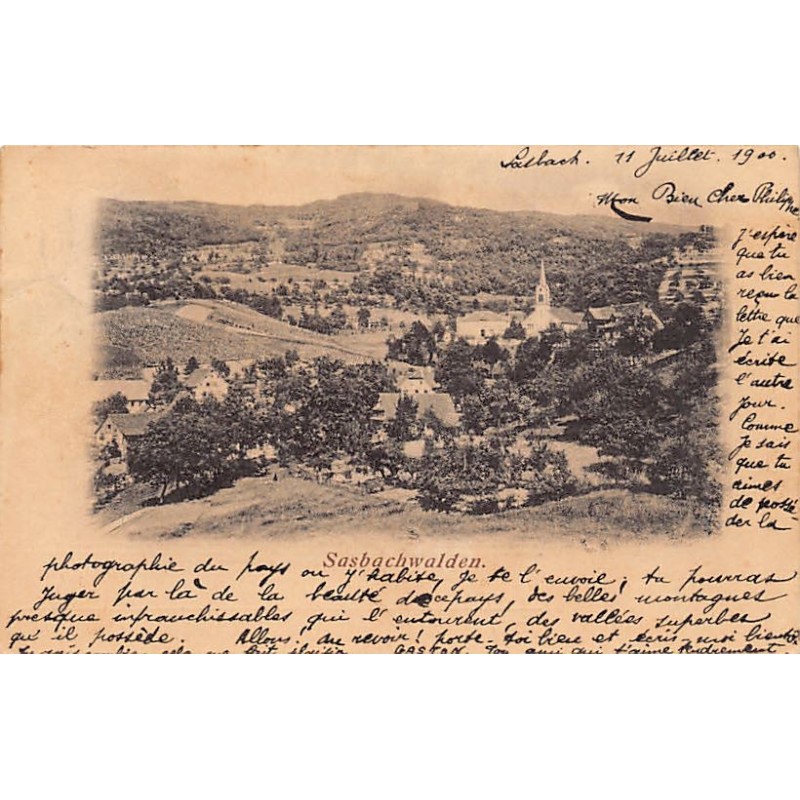 Sasbach. 11 Juillet. 1900.
Mon Bien Cher Philippe
J'espère
que tu
as bien
reçu la
lettre que
Je t'ai
écrite
l'autre
jour.
Comme
Je sais
que tu
aimes
de possé
der la
Sasbachwalden.
photographie du pays ou J'habite, Je te l'envoie; tu pourras
Juger par là de la beauté de ce pays, des belles montagnes
presque infranchissables qui l'entourent, des vallées superbes
qu'il possède. Allons! au revoir! porte-toi bien et écris-moi bientôt
GASTON. Ton ami qui t'aime tendrement.